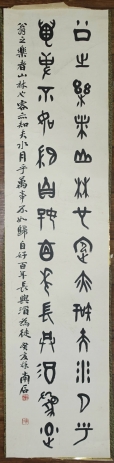 翁之樂者山林也客亦知夫水月乎
萬事不如自百年長與為
翁之樂者山林也客亦知夫水月乎萬事不如歸自好百年長與酒為徒 癸亥秋 南石